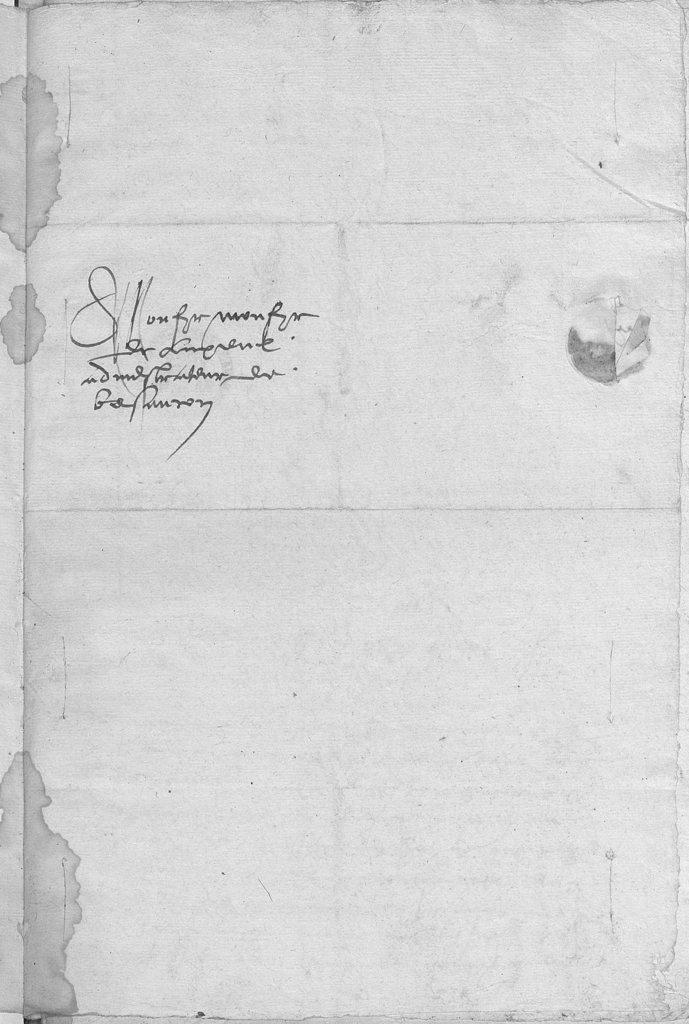 A Monsr monsr
de Luxeul
administrateur de
besancon